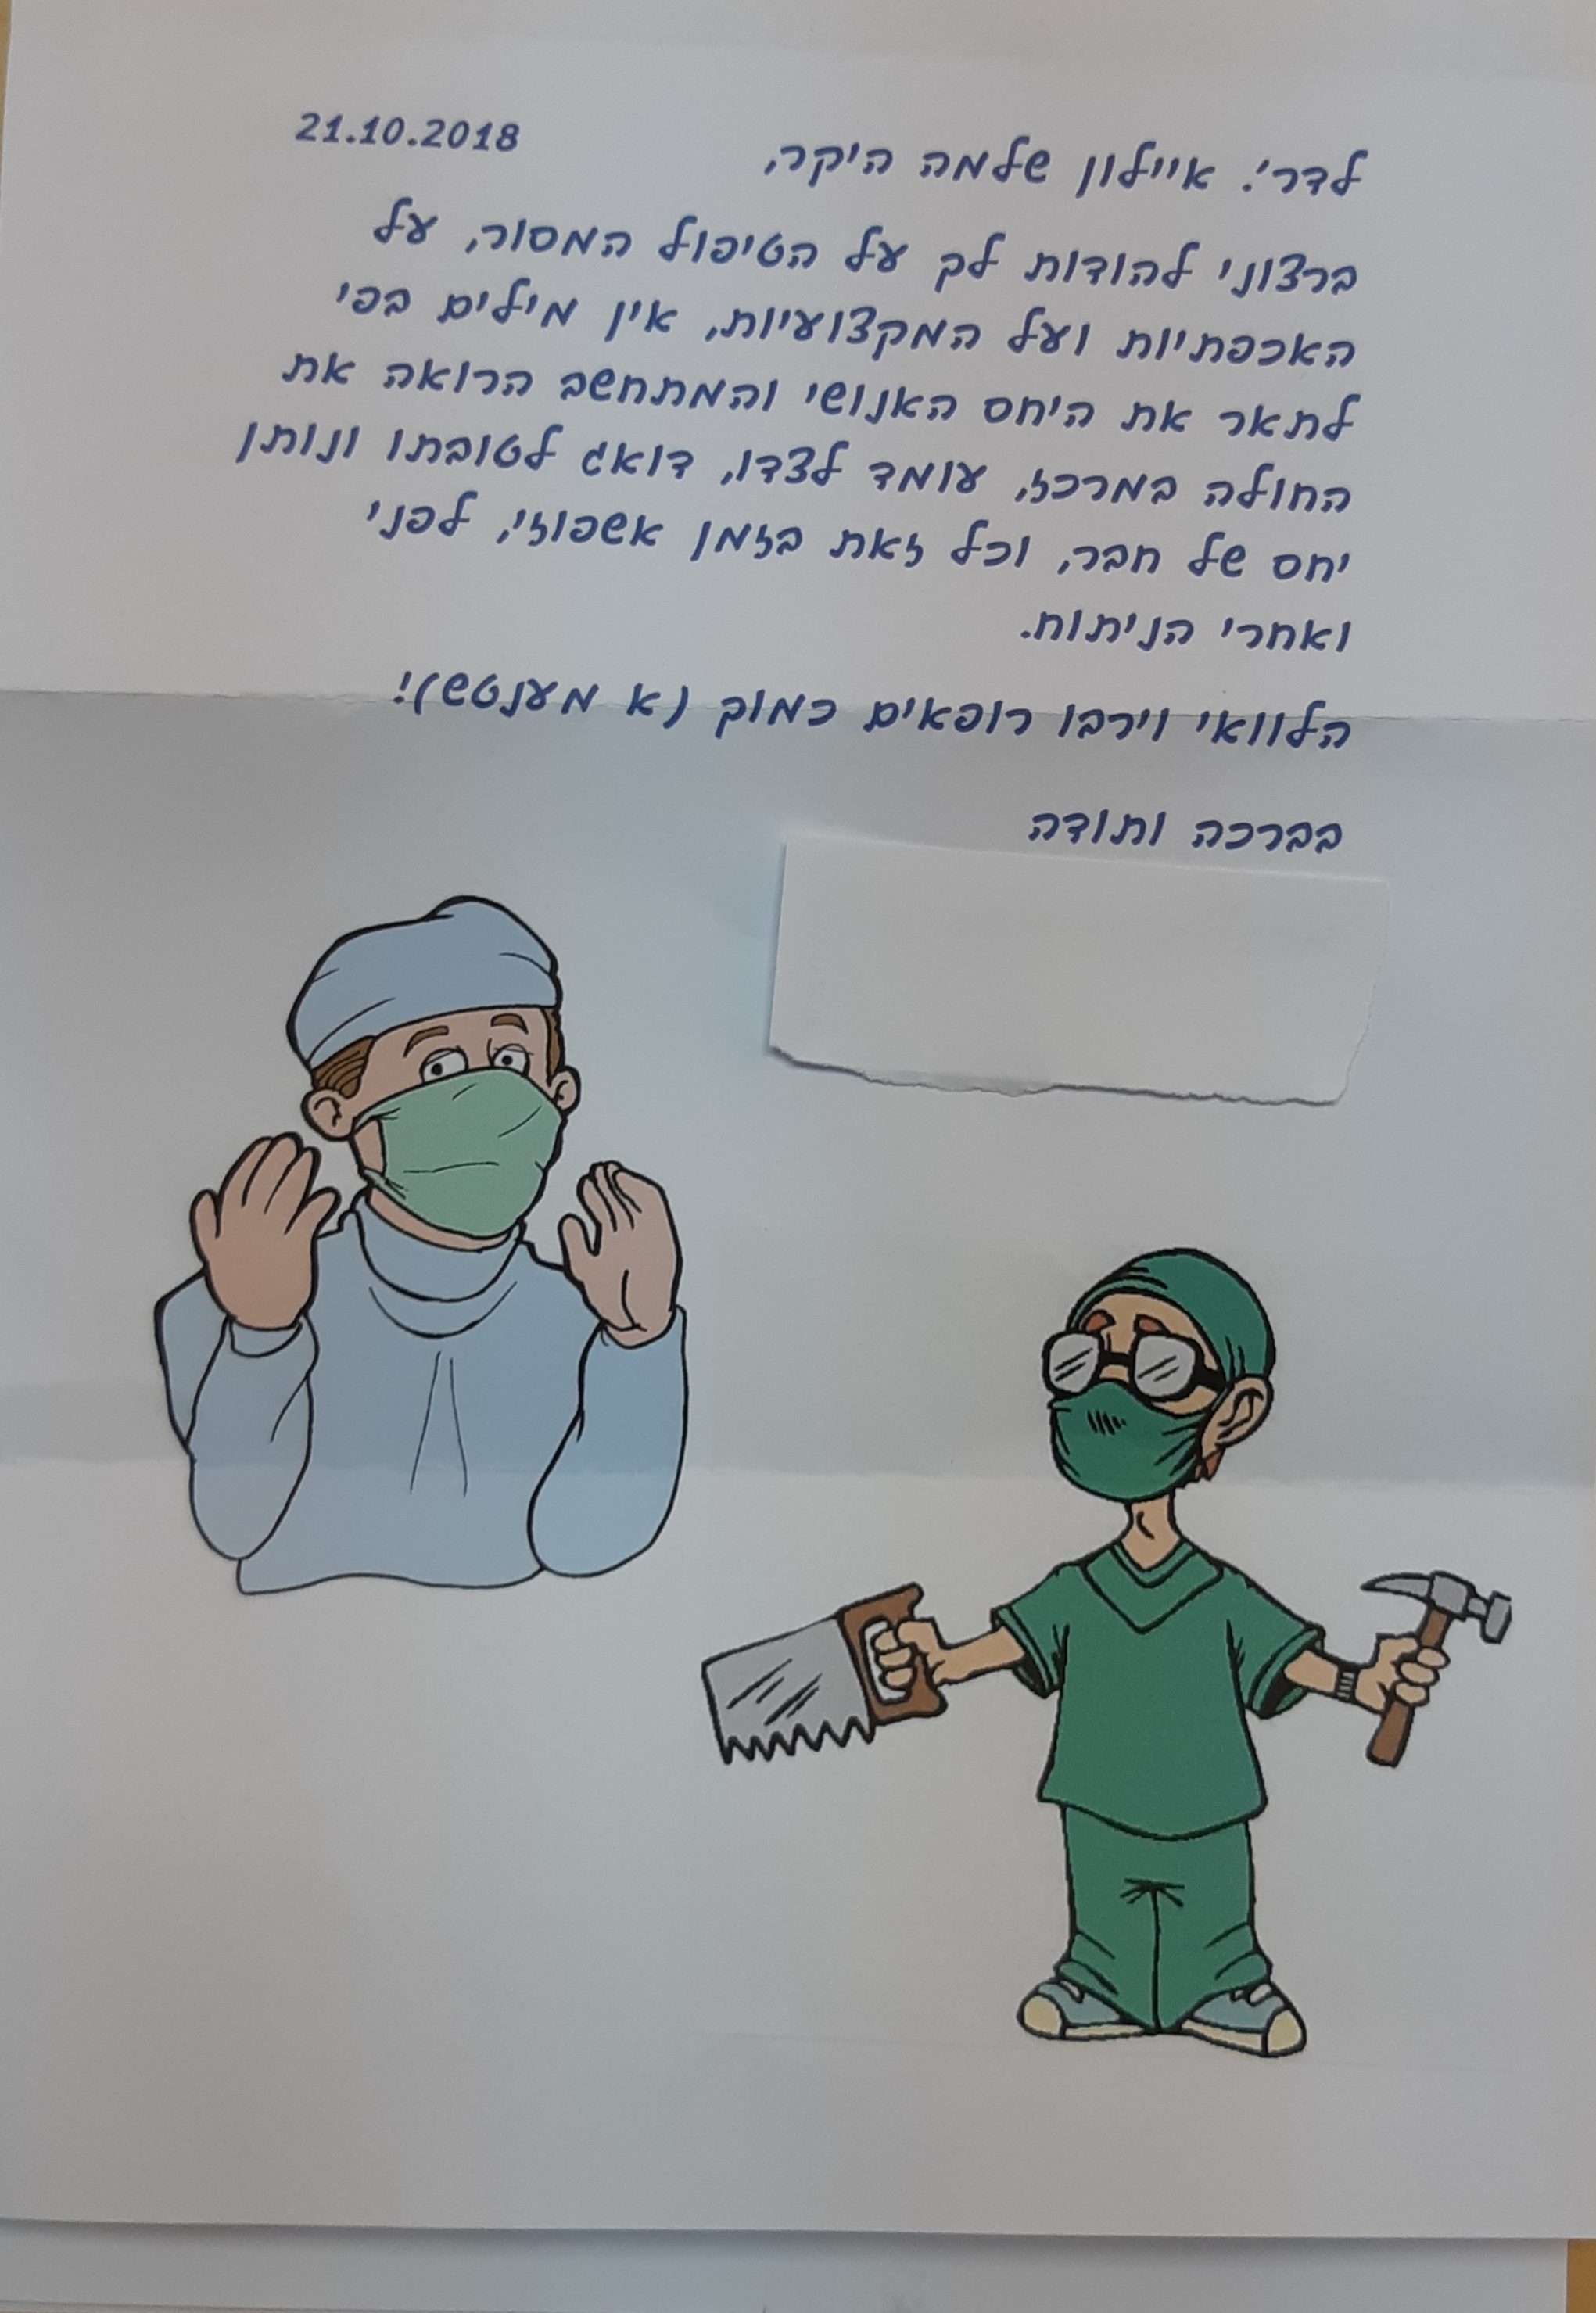 21.10.2018
לדר'. איילון שלמה היקר,
ברצוני להודות לך על הטיפול המסור, על
האכפתיות ועל המקצועיות, אין מילים בפי
לתאר את היחס האנושי והמתחשב הרואה את
החולה במרכז, עומד לצדו, דואג לטובתו ונותן
יחס של חבר, וכל זאת בזמן אשפוזי, לפני
ואחרי הניתוח.
הלוואי וירבו רופאים כמוך (א מענטש)!
בברכה ותודה